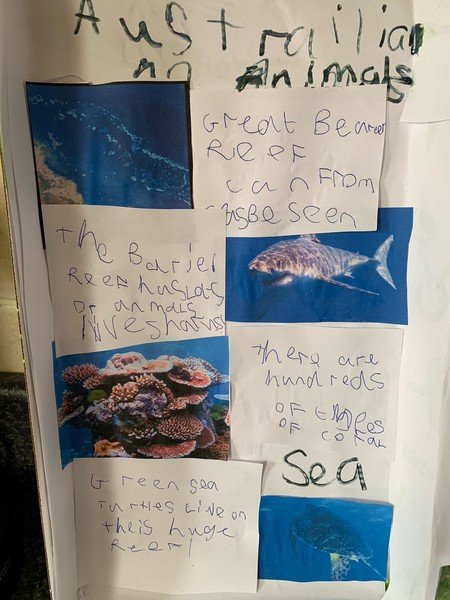 Australian
Animals
Great Bearrer
Reef
can From
Be Seen
The Barier
Reef has lots
of animals
There are
hundreds
of types
of coral
Sea
Green sea
turtles Live on
this huge
Reef!